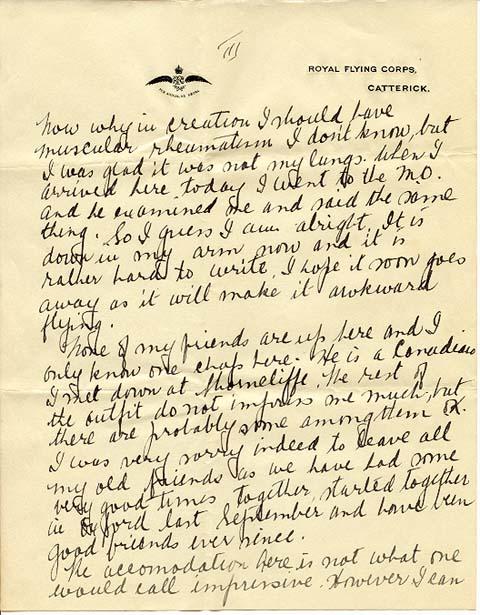 III
ROYAL FLYING CORPS,
CATTERICK.
PER ARDUA AD ASTRA
Now why in creation I should have
muscular rheumatism I dont know, but
I was glad it was not my lungs. When I
arrived here today I went to the M.O.
and he examined me and said the same
thing. So I guess I am alright. It is
down in my arm now and it is
rather hard to write. I hope it soon goes
away as it will make it awkward
flying.
None of my friends are up here and I
only know one chap here. He is a Canadian
I met down at Shorncliffe. The rest of
the outfit do not impress me much, but
there are probably some among them O.K.
I was very sorry indeed to leave all
my old friends as we have had some
very good times together, started together
in Oxford last September and have been
good friends ever since.
The accomodation here is not what one
would call impressive. However I can